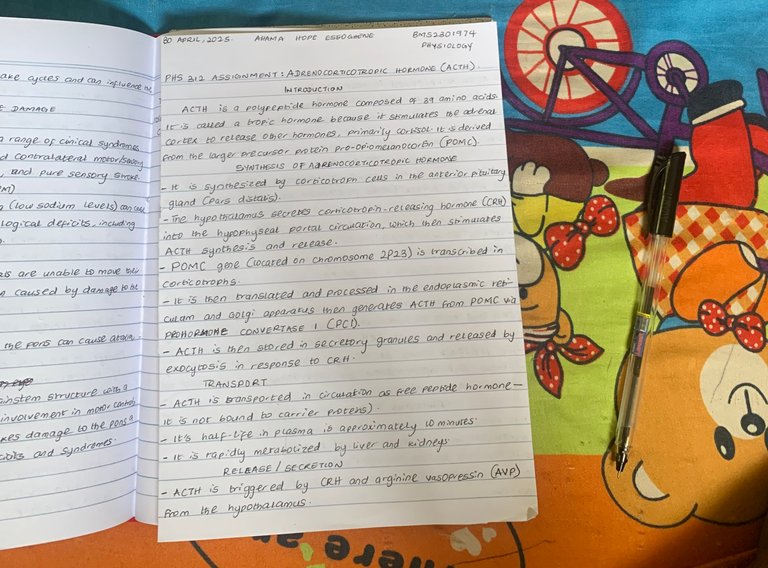 ake cycles and can influence the
F DAMAGE
a range of clinical syndromes
d contralateral motor/sensory
, and pure sensory stroke.
(low sodium levels) can
logical deficits, including
are unable to move their
n caused by damage to the
the pons can cause
instem structure with a
involvement in motor control
kes damage to the pons a
and syndromes.
30 APRIL, 2025. AHAMA HOPE ESEOGHENE BMS2301974
PHYSIOLOGY
PHS 312 ASSIGNMENT: ADRENOCORTICOTROPIC HORMONE (ACTH).
INTRODUCTION
ACTH is a polypeptide hormone composed of 39 amino acids.
It is called a tropic hormone because it stimulates the adrenal
cortex to release other hormones, primarily cortisol. It is derived
from the larger precursor protein pro-opiomelanocortin (POMC).
SYNTHESIS OF ADRENOCORTICOTROPIC HORMONE
- It is synthesized by corticotroph cells in the anterior pituitary
gland (pars distalis).
- The hypothalamus secretes corticotropin-releasing hormone (CRH)
into the hypophyseal portal circulation, which then stimulates
ACTH synthesis and release.
- POMC gene (located on chromosome 2p23) is transcribed in
corticotrophs.
- It is then translated and processed in the endoplasmic reti-
culum and Golgi apparatus then generates ACTH from POMC via
PROHORMONE CONVERTASE 1 (PC1).
- ACTH is then stored in secretory granules and released by
exocytosis in response to CRH.
TRANSPORT
- ACTH is transported in circulation as free peptide hormone—
it is not bound to carrier proteins).
- It's half-life in plasma is approximately 10 minutes.
- It is rapidly metabolized by liver and kidneys.
RELEASE/SECRETION
- ACTH is triggered by CRH and arginine vasopressin (AVP)
from the hypothalamus.